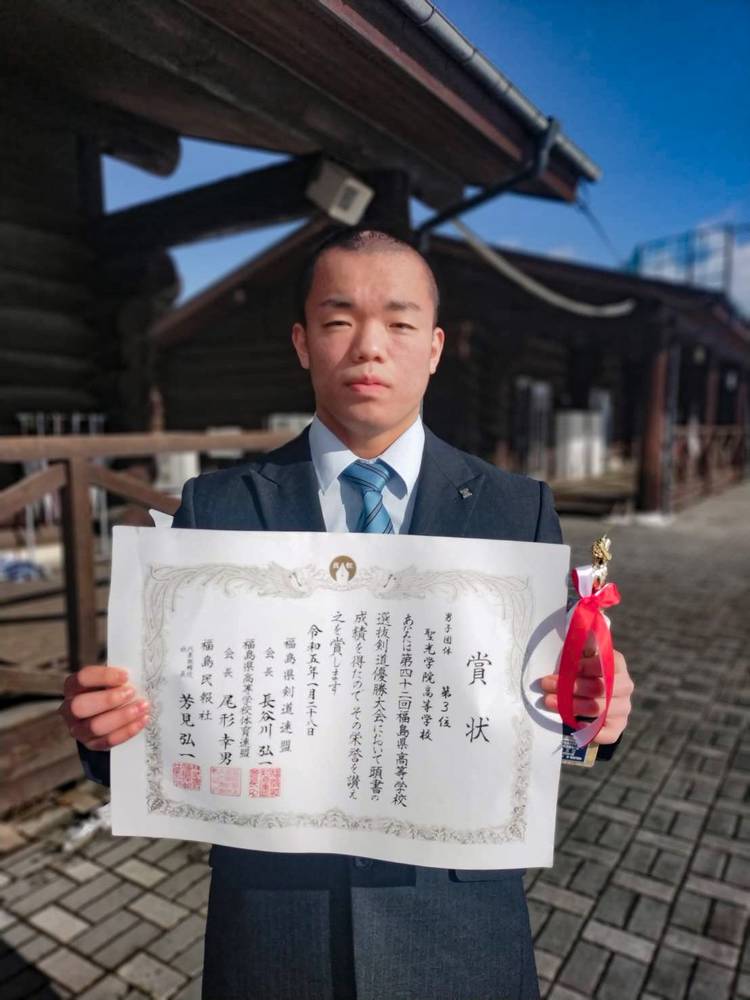 賞状
男子団体 第3位
聖光学院高等学校
あなたは第四十二回福島県高等学校
選抜剣道優勝大会において頭書の
成績を得たので その栄誉を讃え
之を賞します
令和五年一月二十八日
福島県剣道連盟
会長 長谷川弘一
福島県高等学校体育連盟
会長 尾形幸男
福島民報社
代表取締役社長 芳見弘一